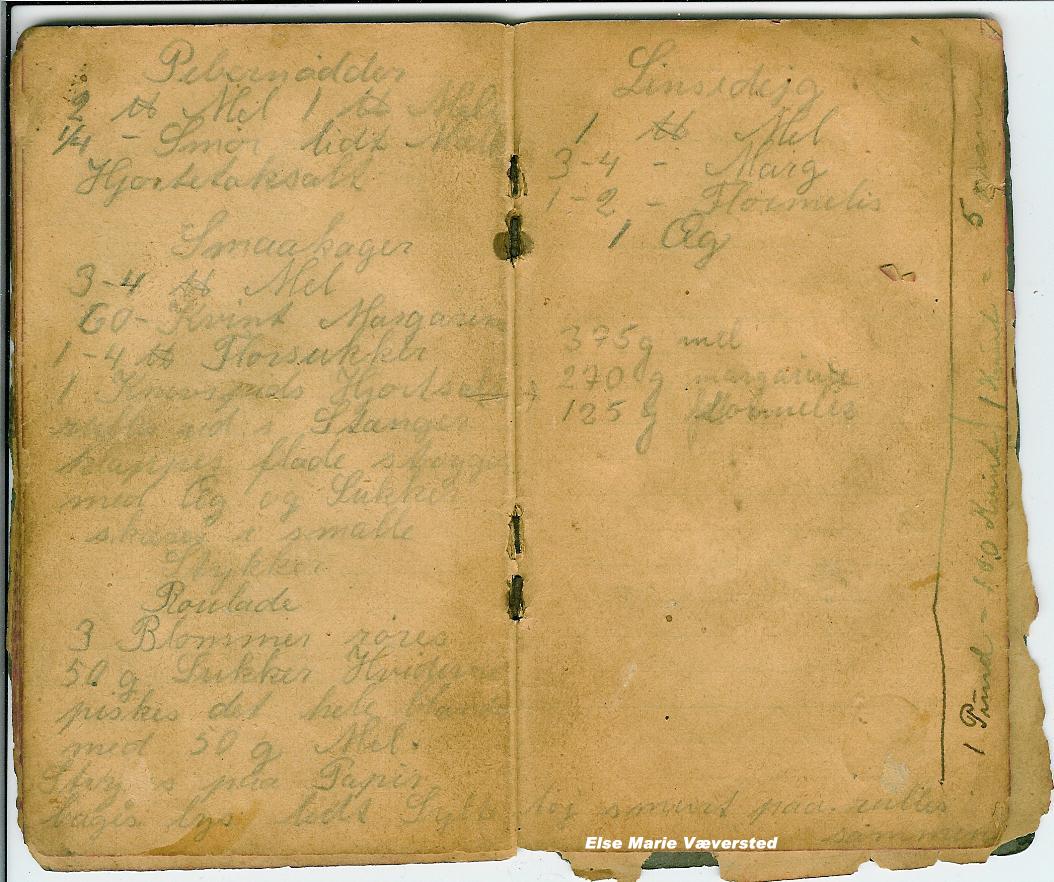 Pebernødder
2 ℔ Mel 1 ℔ Mel
1/4 - Smør lidt
Hjortetaksalt
Smaakager
3-4 ℔ Mel
60- Kvint Margarin
1-4 ℔ Florsukker
1 Knivspids
ud i Stanger
flade
med Æg og Sukker
i smalle
Stykker
Roulade
3 Blommer røres
50 g Sukker
piskes det hele
med 50 g Mel.
paa Papir
bages lys lidt Sylte tøj smurt paa rulles
sammen
Linsedejg
1 ℔ Mel
3-4 - Marg
1-2 - Flormelis
1 Æg
375 g mel
270 g margarine
125 g flormelis
1 Pund - 100 Kvint / 1 Kvint = 5 gram
Else Marie Væversted